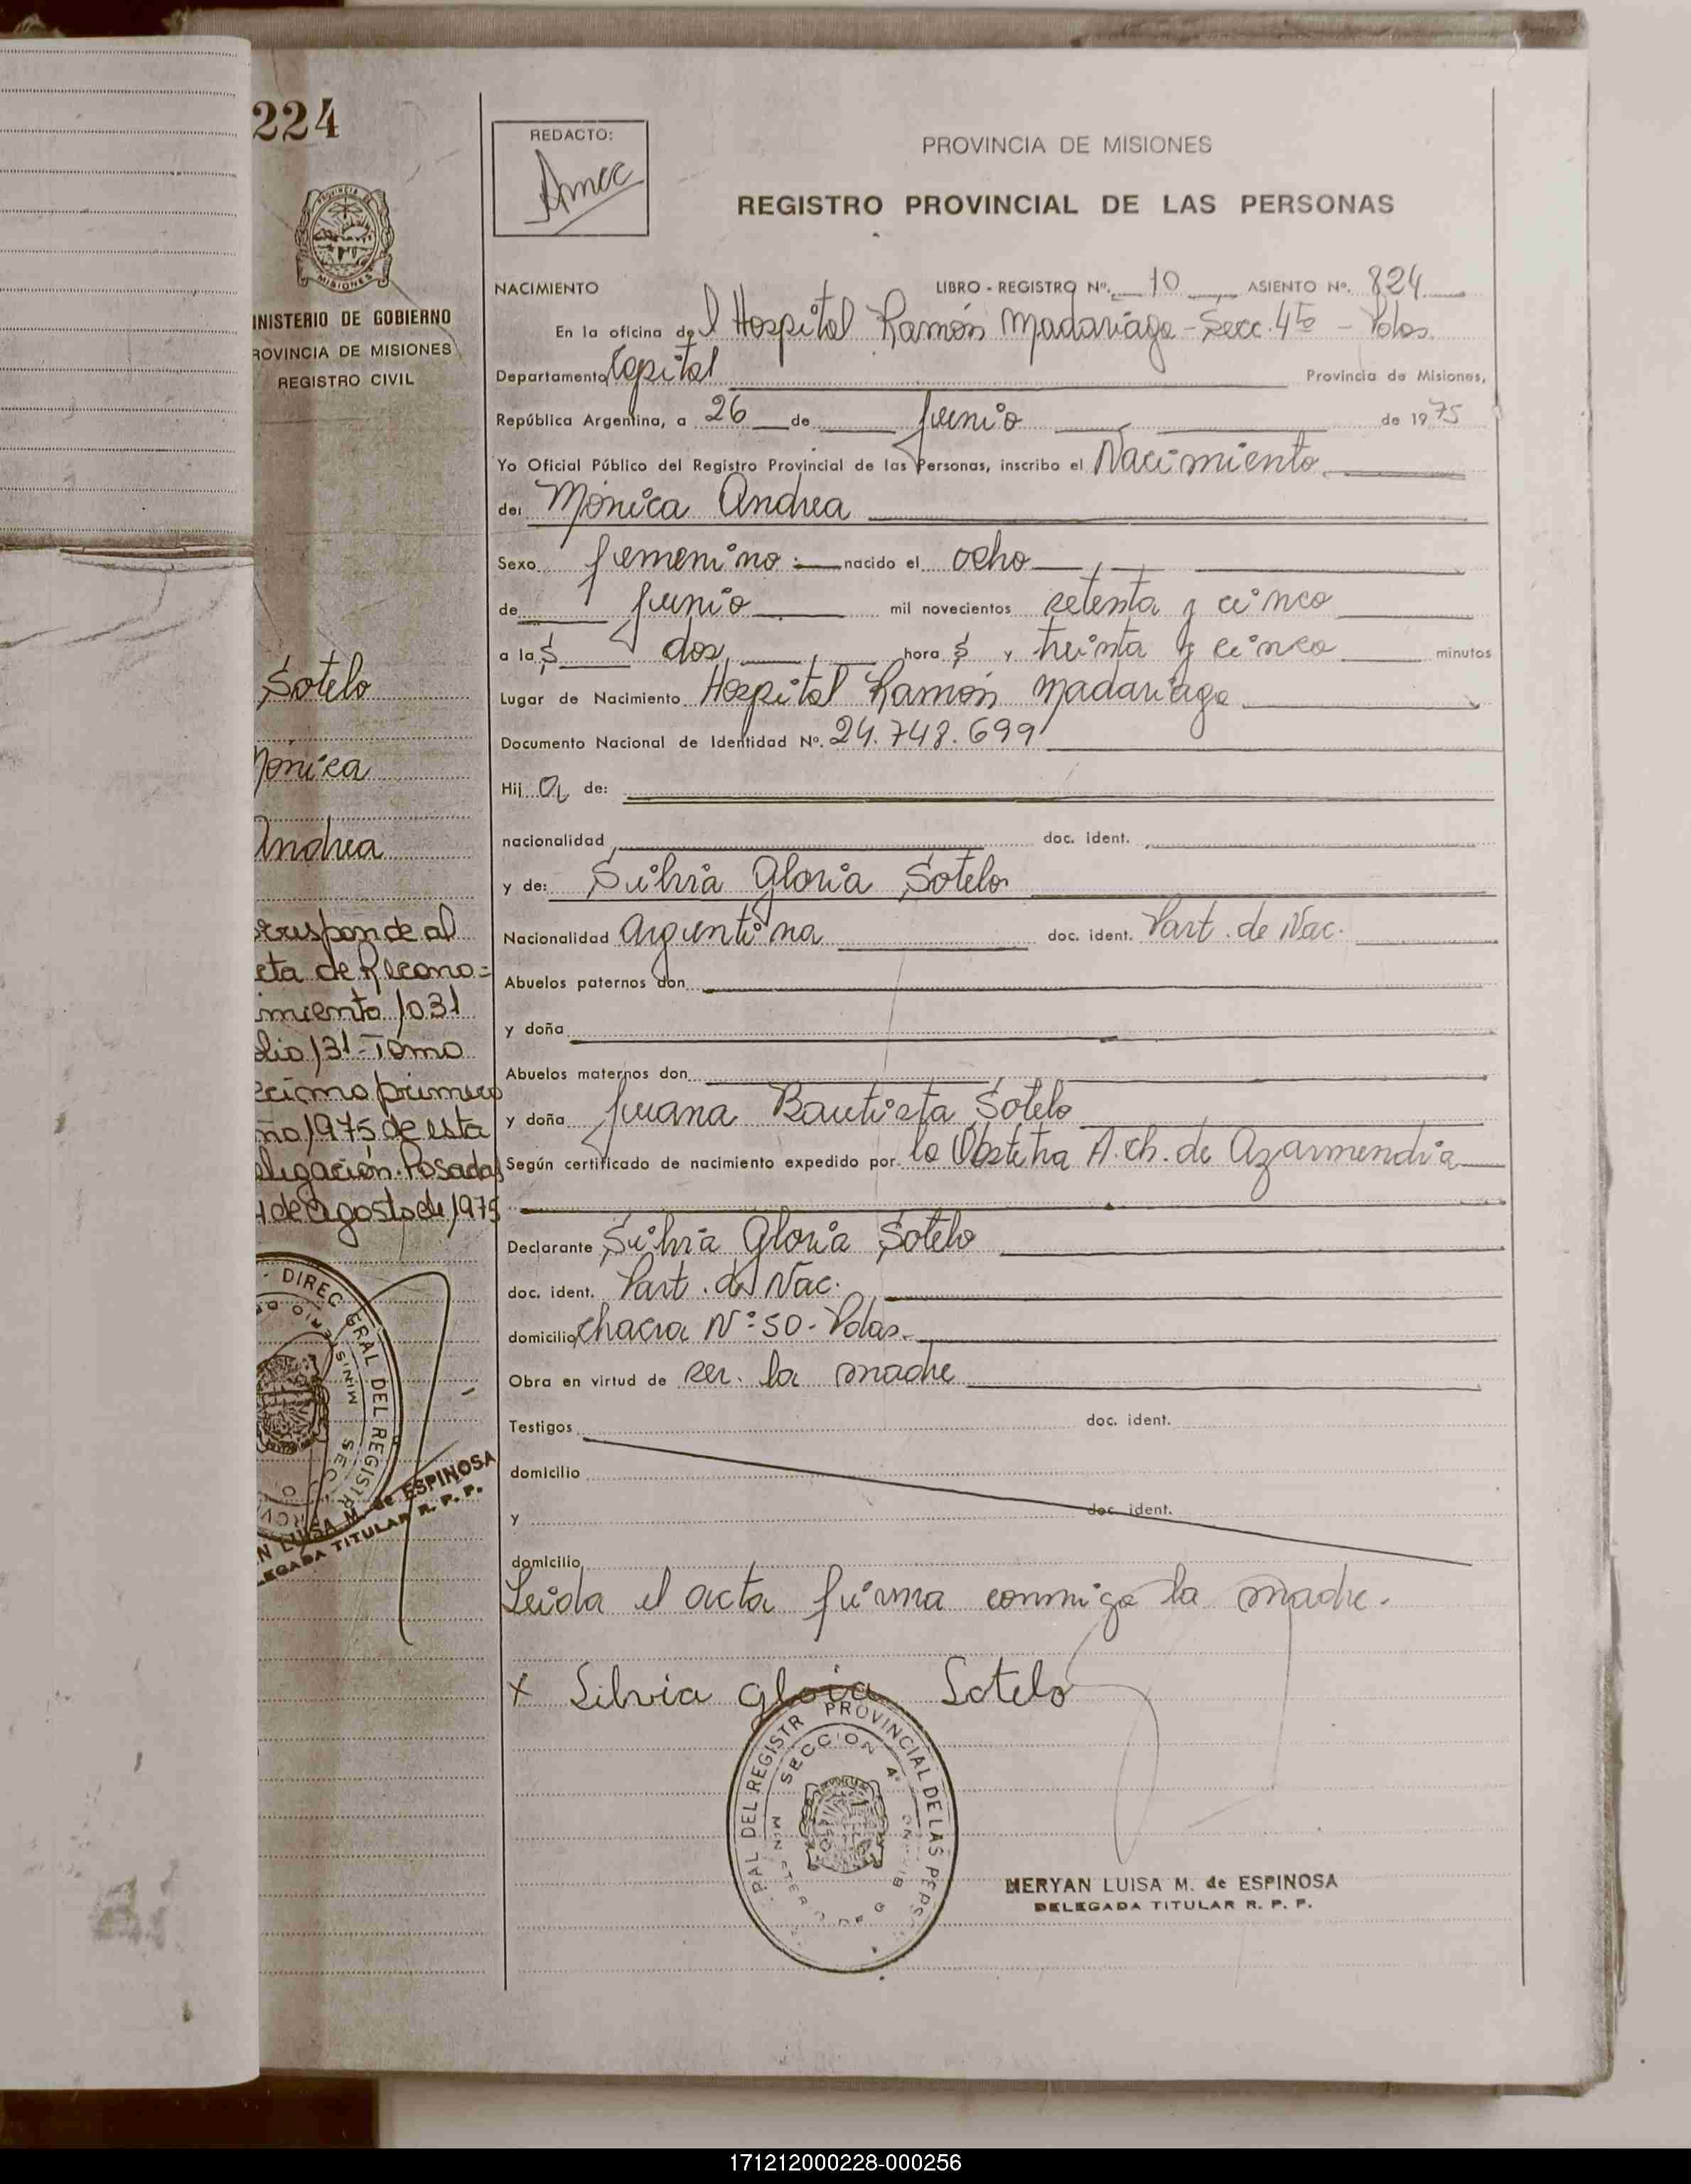 224
MINISTERIO DE GOBIERNO
PROVINCIA DE MISIONES
REGISTRO CIVIL
Sotelo
Mónica
Andrea
rresponde al
cta de Recono=
imiento 1031
olio 131-Tomo
ecimo primero
ño 1975 de esta
elegación-Posadas
4 de Agosto de 1975
DIREC GRAL DEL REGISTR
N LUISA M. de ESPINOSA
LEGADA TITULAR R. P. P.
REDACTO:
PROVINCIA DE MISIONES
REGISTRO PROVINCIAL DE LAS PERSONAS
NACIMIENTO LIBRO - REGISTRO Nº. 10 ASIENTO Nº. 824
En la oficina del Hospital Ramón Madariaga - Secc. 4ta - Pdas.
Departamento Capital Provincia de Misiones,
República Argentina, a 26 de junio de 1975
Yo Oficial Público del Registro Provincial de las Personas, inscribo el Nacimiento
de: Mónica Andrea
Sexo femenino nacido el ocho
de junio mil novecientos setenta y cinco
a las dos hora s y treinta y cinco minutos
Lugar de Nacimiento Hospital Ramón Madariaga
Documento Nacional de Identidad Nº. 24.748.699
Hij a de:
nacionalidad doc. ident.
y de: Silvia Gloria Sotelo
Nacionalidad argentina doc. ident. Part. de Nac.
Abuelos paternos don
y doña
Abuelos maternos don
y doña Juana Bautista Sotelo
Según certificado de nacimiento expedido por la Obstetra A. Ch. de Azarmendia
Declarante Silvia Gloria Sotelo
doc. ident. Part. de Nac.
domicilio chacra Nº 50 - Pdas.
Obra en virtud de ser la madre
Testigos doc. ident.
domicilio
y doc. ident.
domicilio
Leida el acta firma conmigo la madre.
x Silvia Gloia Sotelo
RAL DEL REGISTR PROVINCIAL DE LAS PERS
SECCION 4ª
MERYAN LUISA M. de ESPINOSA
DELEGADA TITULAR R. P. P.
171212000228-000256